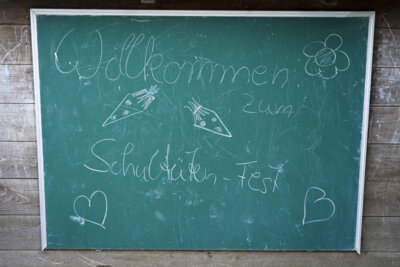 Willkommen
zum
Schultüten-Fest